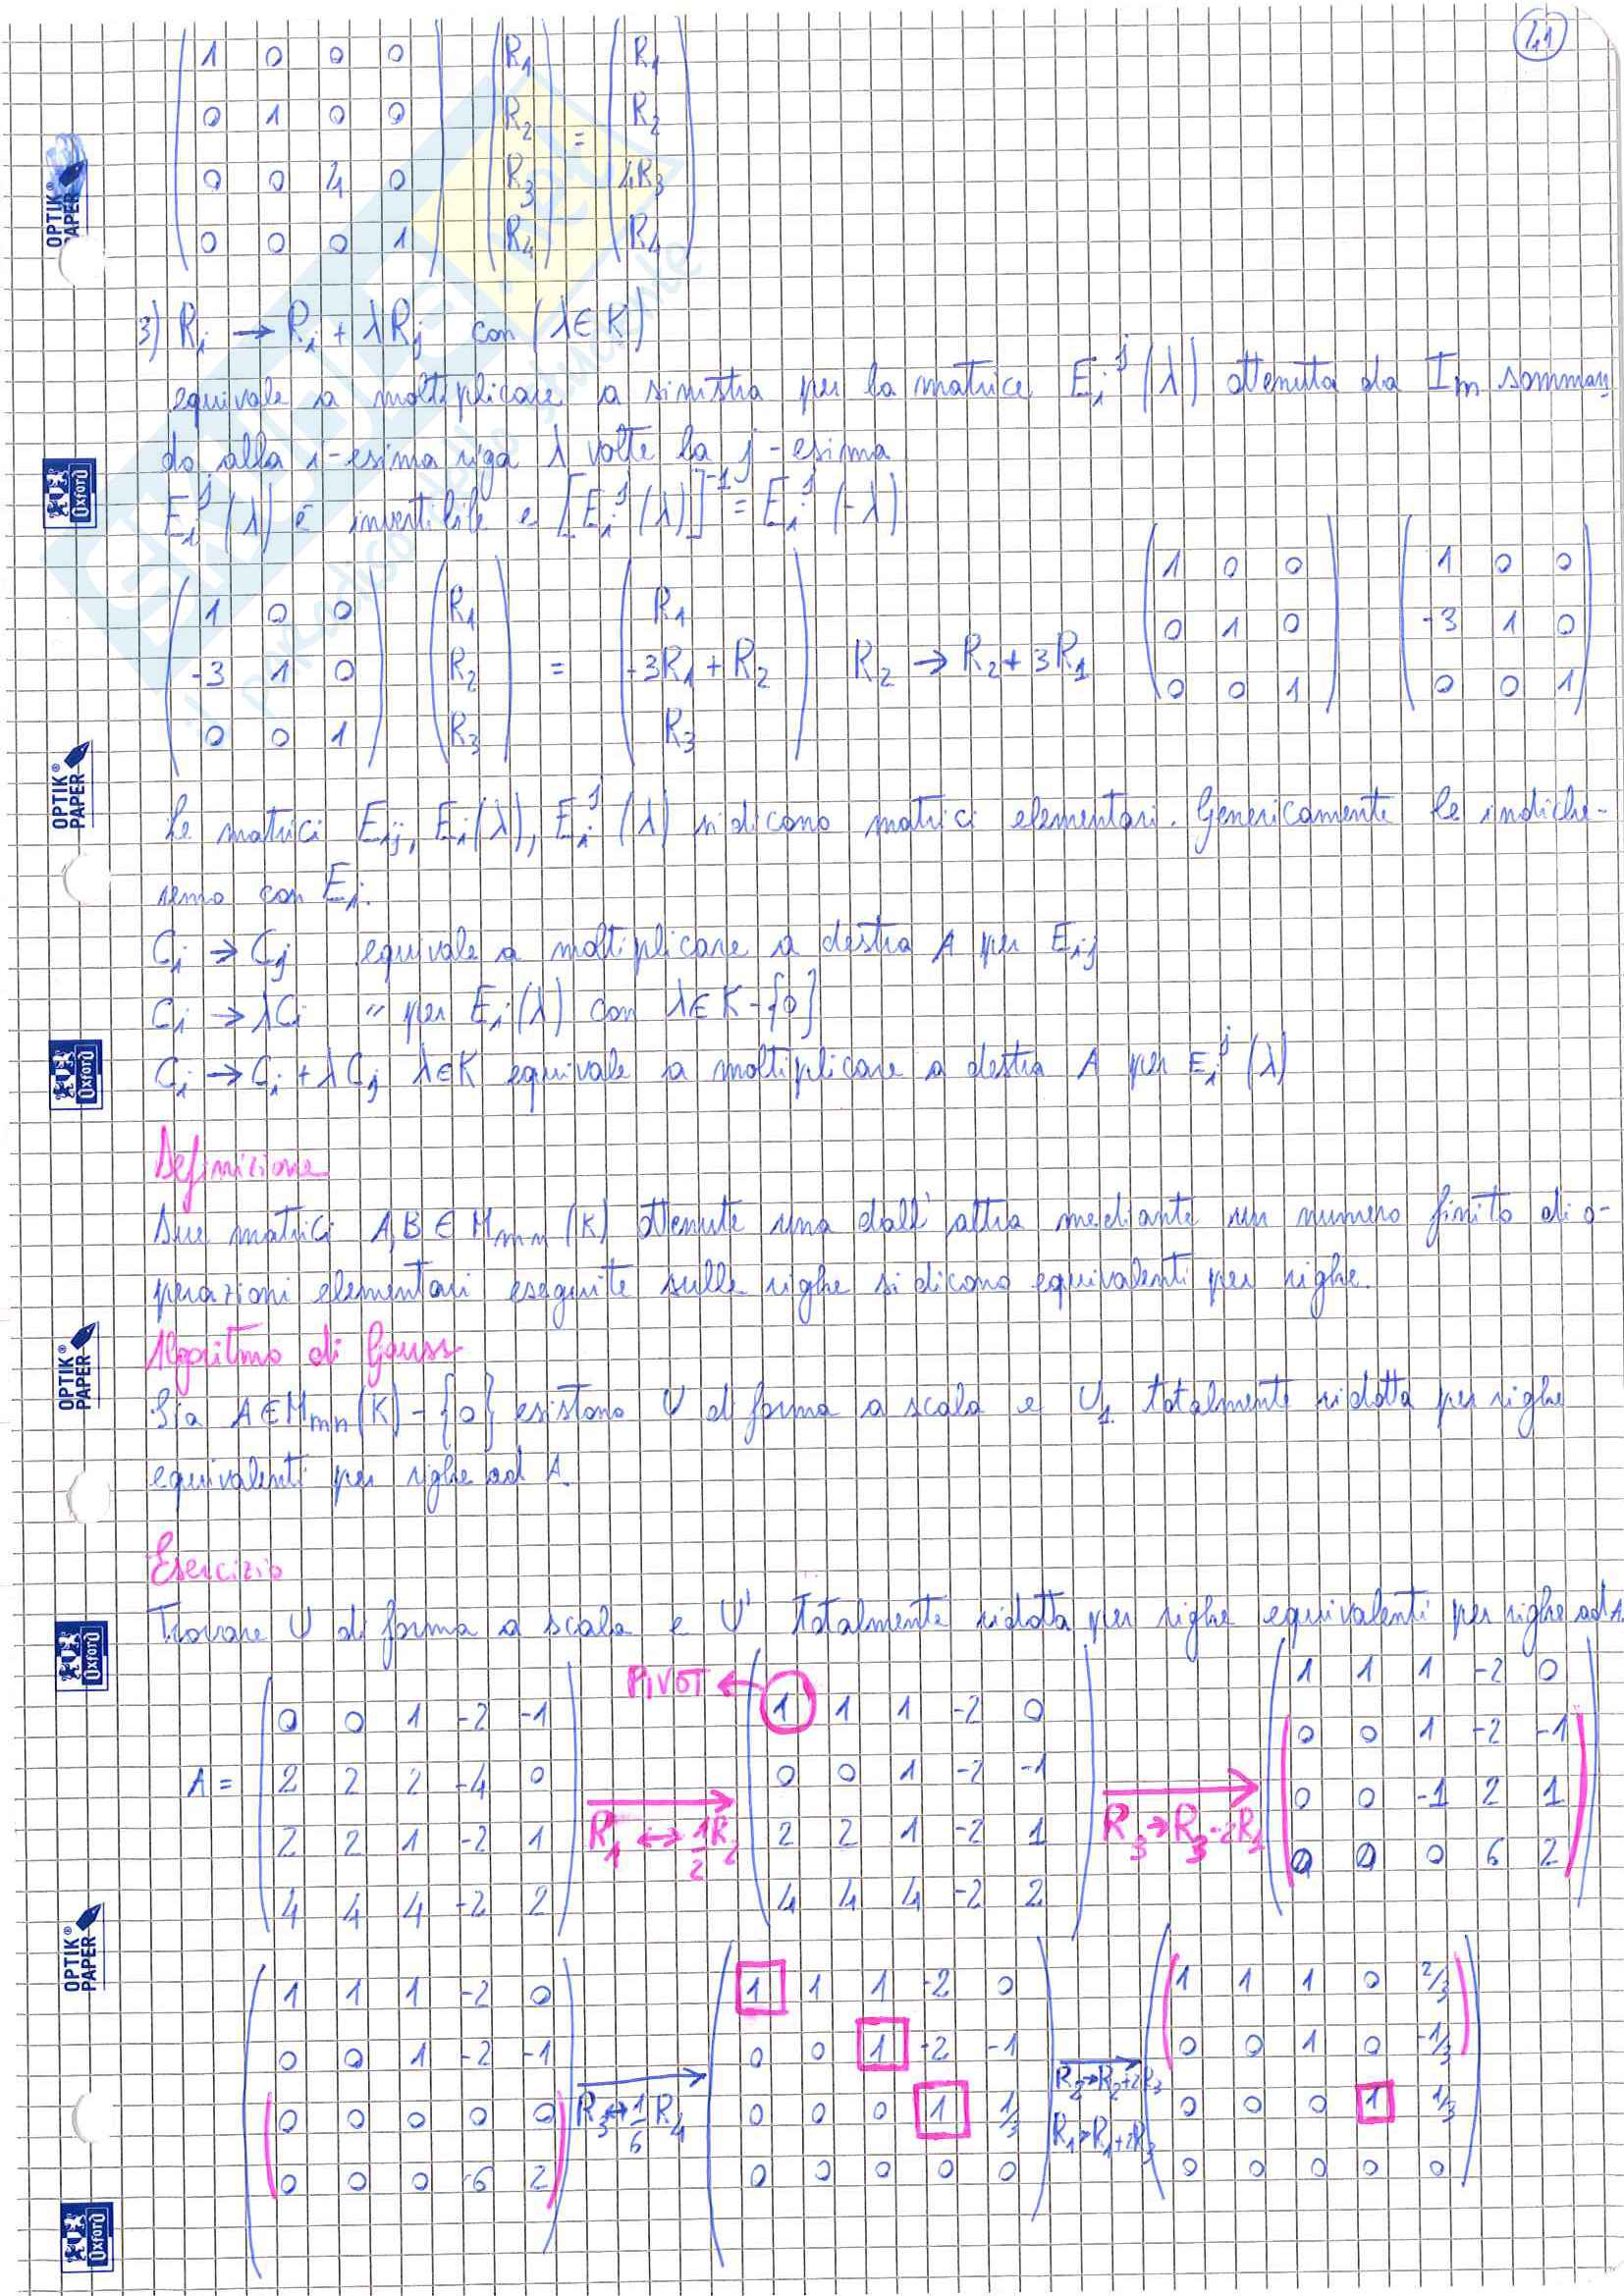 1,1
1 0 0 0 R1 R1
0 1 0 0 R2 = R2
0 0 4 0 R3 4R3
0 0 0 1 R4 R4
3) Ri → Ri + λRj con (λ∈K)
equivale a moltiplicare a sinistra per la matrice Ei^j (λ) ottenuta da Im somman
do alla i-esima riga λ volte la j-esima
Ei^j (λ) è invertibile e [Ei^j (λ)]^-1 = Ei^j (-λ)
1 0 0 R1 R1 1 0 0 1 0 0
-3 1 0 R2 = -3R1 + R2 R2 → R2 + 3R1 0 1 0 -3 1 0
0 0 1 R3 R3 0 0 1 0 0 1
Le matrici Eij, Ei(λ), Ei^j (λ) si dicono matrici elementari. Genericamente le indiche-
remo con Ei.
Ci → Cj equivale a moltiplicare a destra A per Eij
Ci → λCi " per Ei(λ) con λ∈K-{0}
Ci → Ci + λCj λ∈K equivale a moltiplicare a destra A per Ei^j (λ)
Definizione
Due matrici A,B ∈ Mmn (K) ottenute una dall'altra mediante un numero finito di o-
perazioni elementari eseguite sulle righe si dicono equivalenti per righe.
Algoritmo di Gauss
Sia A∈Mmn(K)-{0} esistono U di forma a scala e U1 totalmente ridotta per righe
equivalenti per righe ad A.
Esercizio
Trovare U di forma a scala e U' totalmente ridotta per righe equivalenti per righe ad A.
PIVOT ←
A =
0 0 1 -2 -1
2 2 2 -4 0
2 2 1 -2 1
4 4 4 -2 2
R1 ↔ 1/2 R2
1 1 1 -2 0
0 0 1 -2 -1
2 2 1 -2 1
4 4 4 -2 2
R3 → R3 - 2R1
1 1 1 -2 0
0 0 1 -2 -1
0 0 -1 2 1
0 0 0 6 2
1 1 1 -2 0
0 0 1 -2 -1
0 0 0 0 0
0 0 0 6 2
R3 ↔ 1/6 R4
1 1 1 -2 0
0 0 1 -2 -1
0 0 0 1 1/3
0 0 0 0 0
R2→R2+2R3
R1→R1+2R3
1 1 1 0 2/3
0 0 1 0 -1/3
0 0 0 1 1/3
0 0 0 0 0
OPTIK® PAPER
Oxford
OPTIK® PAPER
Oxford
OPTIK® PAPER
Oxford
OPTIK® PAPER
Oxford
SKUOLA.NET